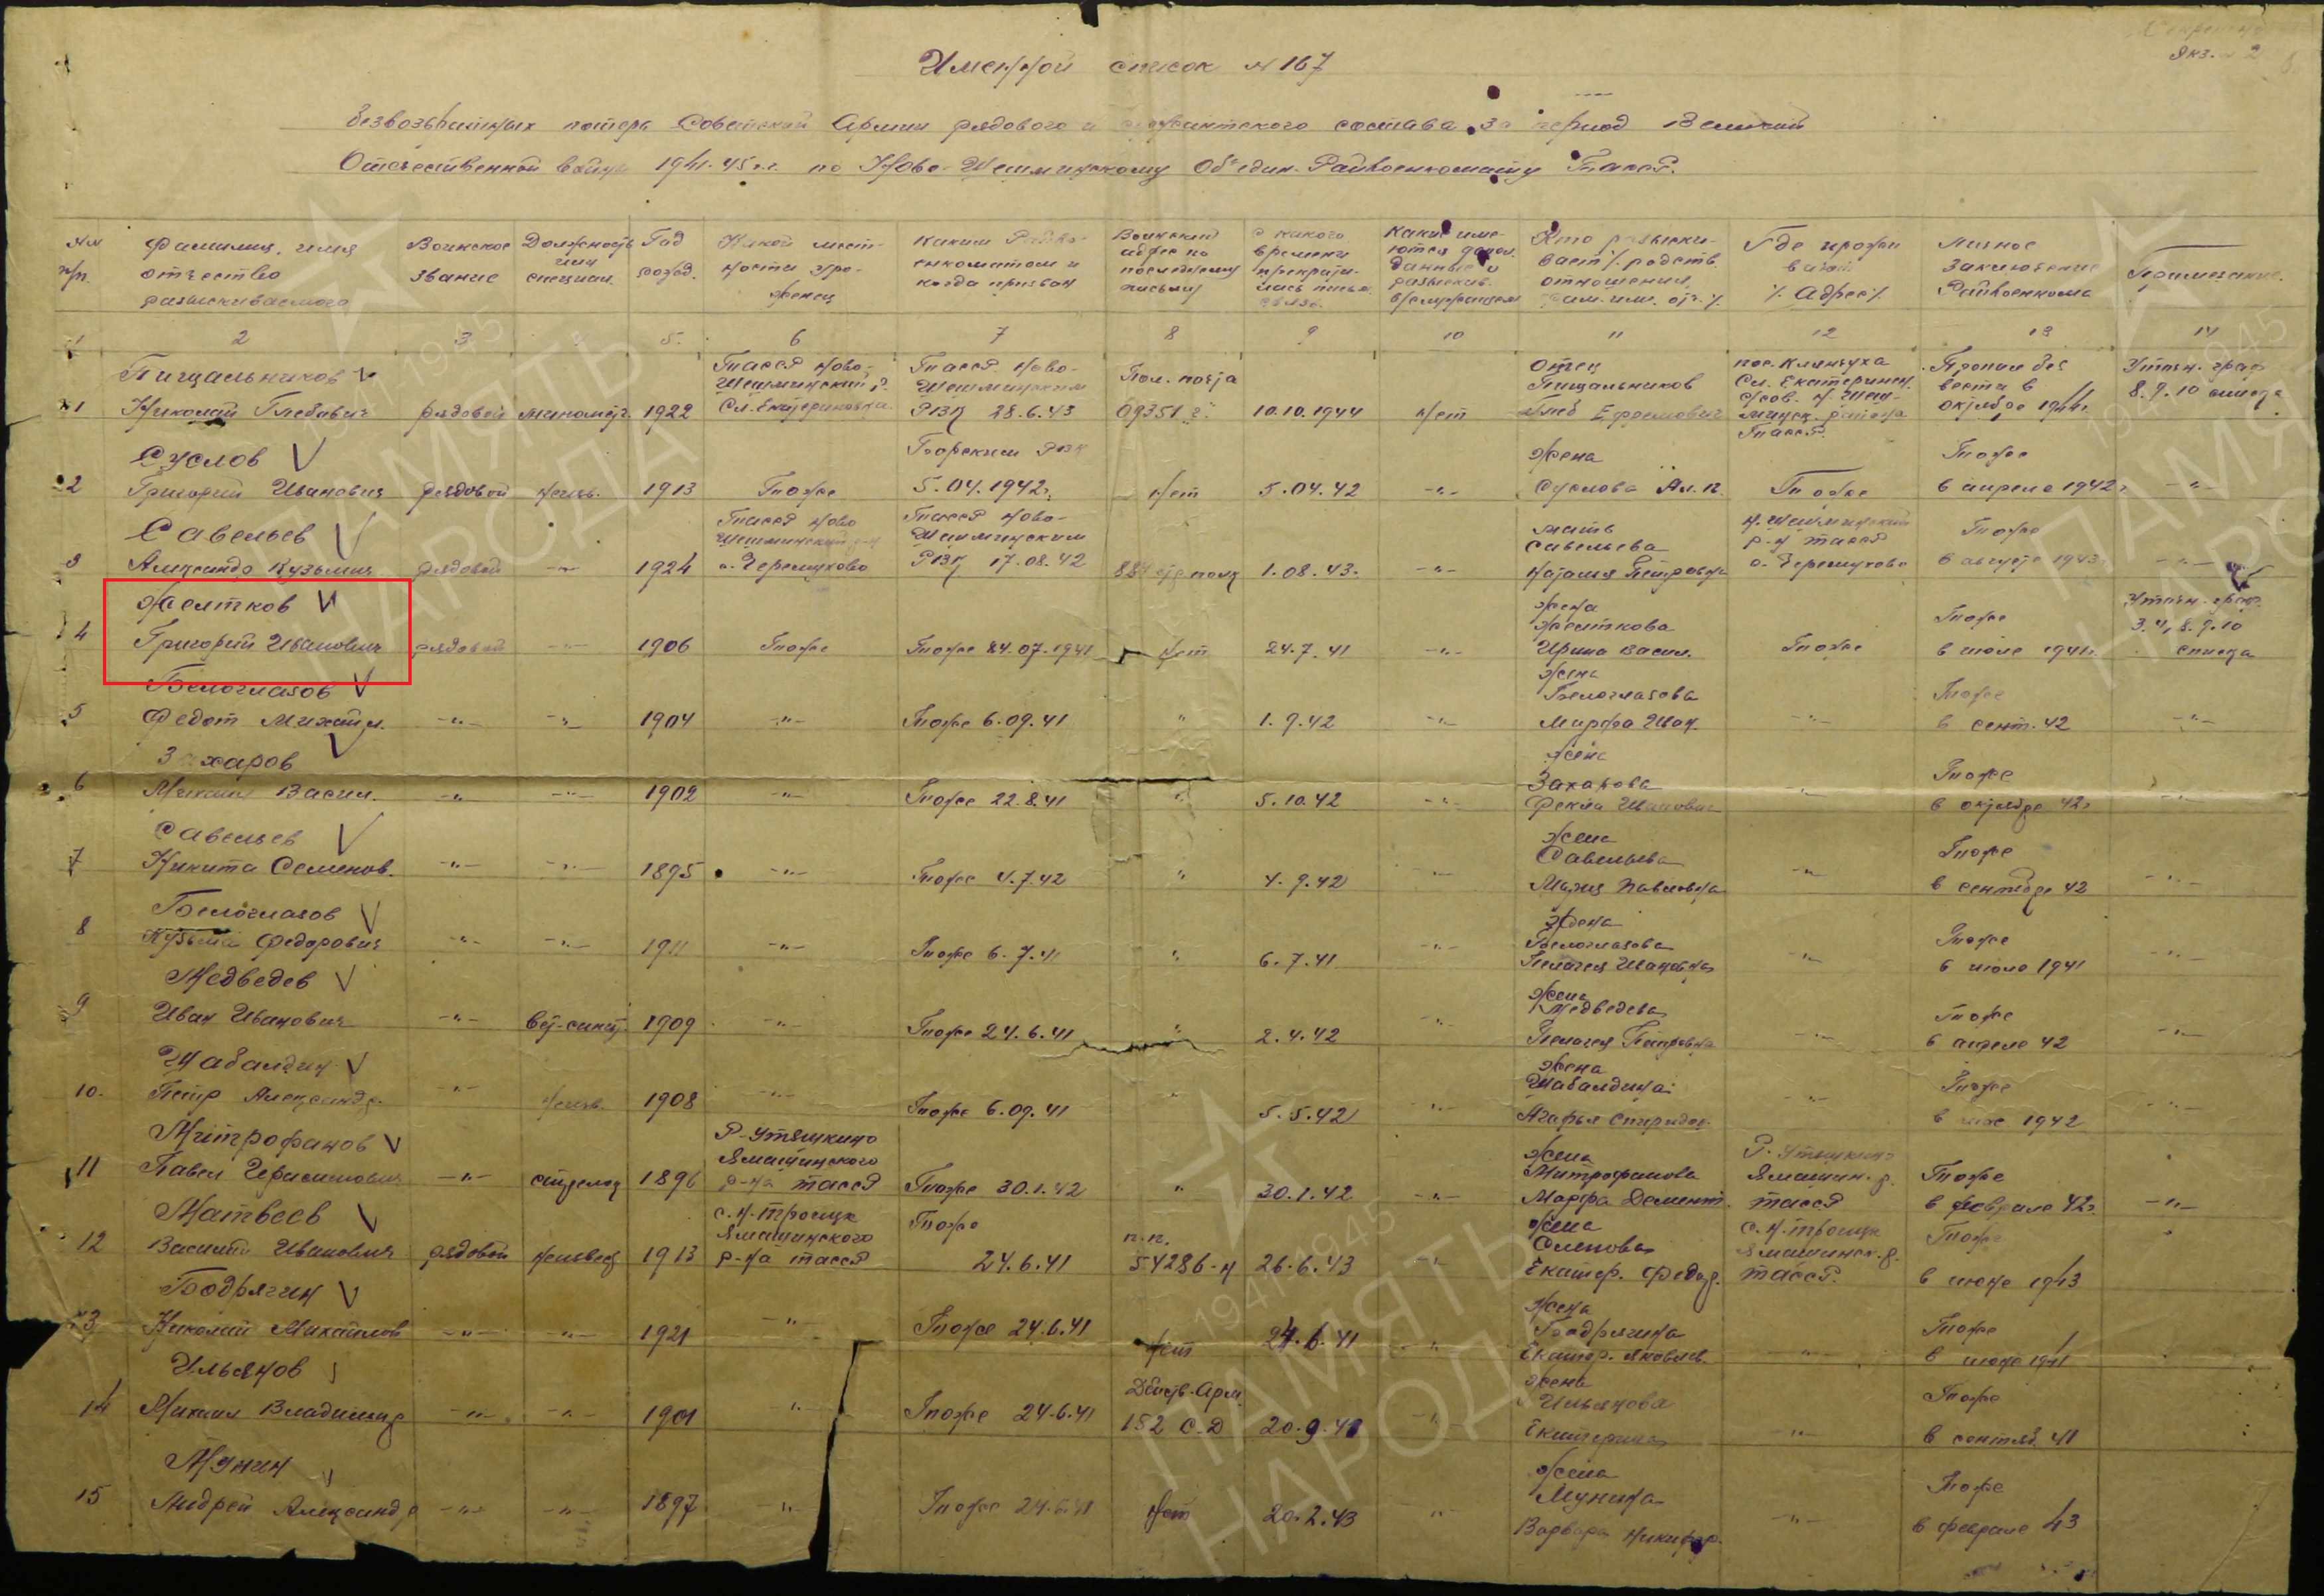 Экз. № 2
Именной список № 167
безвозвратных потерь Советской Армии рядового и сержантского состава за период Великой
Отечественной войны 1941-45 г.г. по Ново-Шешминскому Объедин. Райвоенкомату ТАССР.
№№ п/п. Фамилия, имя отчество разыскиваемого Воинское звание Должность или специал. Год рожд. Какой местности уроженец Каким Райвоенкоматом и когда призван Воинский адрес по последнему письму С какого времени прекратилась письм. связь Какие имеются допол. данные о разыскив. военнослужащем Кто разыскивает /родств. отношения, фам. им. от./ Где прожи вает /Адрес/ Личное заключение Райвоенкома Примечание.
1 2 3 4 5 6 7 8 9 10 11 12 13 14
Пищальников ТАССР Ново- ТАССР Ново- Пол. почта Отец пос. Клянчуха Пропал без Уточн. граф
1 Николай Глебович рядовой миномётч. 1922 Шешминский р. Сл. Екатериновка Шешминским РВК 28.6.43 09351 "г" 10.10.1944 нет Пищальников Глеб Ефремович Сл. Екатеринен. Н. Шешминск. района ТАССР вести в октябре 1944г. 8.9.10 списка
Суслов Тоже
2 Григорий Иванович рядовой неизв. 1913 Тоже РВК 5.04.1942г. нет 5.04.42 -"- жена Суслова Ан. Тоже в апреле 1942г. -"-
Савельев ТАССР Ново ТАССР Ново- мать Н. Шешминский Тоже
3 Александр Кузьмич рядовой -"- 1924 Шешминский р-н с. Черемухово Шешминским РВК 17.08.42 полк 1.08.43. -"- Савельева Наталья Петровна р-н ТАССР с. Черемухово в августе 1943г. -"-
Желтков жена Тоже Уточн. граф.
4 Григорий Иванович рядовой -"- 1906 Тоже Тоже 24.07.1941 нет 24.7.41 -"- Желткова Ирина Васил. Тоже в июле 1941г. 3.4,8.9.10 списка
Белоглазов жена Тоже
5 Федот Михайл. -"- -"- 1904 -"- Тоже 6.09.41 " 1.9.42 -"- Белоглазова Марфа Иван. -"- в сент. 42 -"-
Захаров жена Тоже
6 Михаил Васил. -"- -"- 1902 -"- Тоже 22.8.41 " 5.10.42 -"- Захарова Фекла Ивановн. -"- в октябре 42г. -"-
Савельев жена Тоже
7 Никита Семенов. -"- -"- 1895 -"- Тоже 4.7.42 " 4.9.42 -"- Савельева Мария Павловна -"- в сентябре 42 -"-
Белоглазов жена Тоже
8 Кузьма Федорович -"- -"- 1911 -"- Тоже 6.7.41 " 6.7.41 -"- Белоглазова Пелагея Ивановна -"- в июле 1941 -"-
Медведев жена Тоже
9 Иван Иванович -"- 1909 -"- Тоже 24.6.41 " 2.4.42 -"- Медведева Пелагея Петровна -"- в апреле 42 -"-
Шабалдин жена Тоже
10. Петр Александр. -"- неизв. 1908 -"- Тоже 6.09.41 " 5.5.42 -"- Шабалдина Агафья Спиридон. -"- в мае 1942 -"-
Митрофанов Р-Утяшкино жена Р. Утяшкино Тоже
11 Павел Герасимович -"- стрелок 1896 Ямашинского р-на ТАССР Тоже 30.1.42 " 30.1.42 -"- Митрофанова Марфа Демент. Ямашин. р. ТАССР в феврале 42г. -"-
Матвеев с. Н. Троицк Тоже п.п. жена с. Н. Троицк Тоже
12 Василий Иванович рядовой неизвес 1913 Ямашинского р-на ТАССР 24.6.41 54286-н 26.6.43 -"- Екатер. Федор. Ямашинск. р. ТАССР. в июне 1943
Бодрягин жена Тоже
13 Николай Михайлов -"- -"- 1921 -"- Тоже 24.6.41 нет 24.6.41 -"- Бодрягина Екатер. Яковлев. -"- в июне 1941
Ильянов Действ. Арм. жена Тоже
14 Михаил Владимир -"- -"- 1901 -"- Тоже 24.6.41 152 С.Д 20.9.41 -"- Ильянова Екатерина -"- в сентяб. 41
Мунин жена Тоже
15 Андрей Александр -"- -"- 1897 -"- Тоже 24.6.41 нет 20.2.43 -"- Мунина Варвара Никифор. -"- в феврале 43
1941 1945
ПАМЯТЬ
НАРОДА